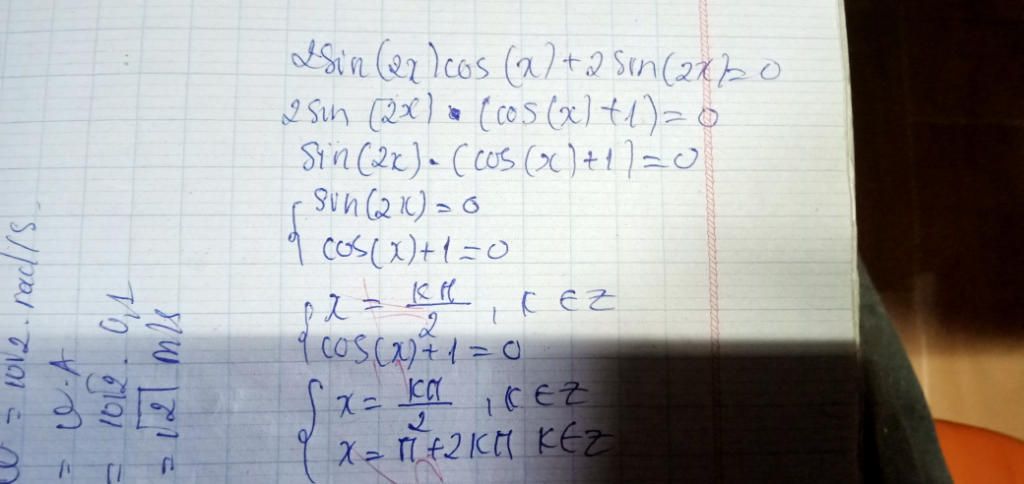 2sin(2x)cos(x)+2sin(2x)=0
2sin(2x)•(cos(x)+1)=0
sin(2x)•(cos(x)+1)=0
{ sin(2x)=0
cos(x)+1=0
{ x = kπ/2, k ∈ Z
cos(x)+1=0
{ x = kπ/2, k ∈ Z
x = π+2kπ k∈Z
= 10√2 · rad/s
= ω·A
= 10√2 · 0,1
= √2 m/s